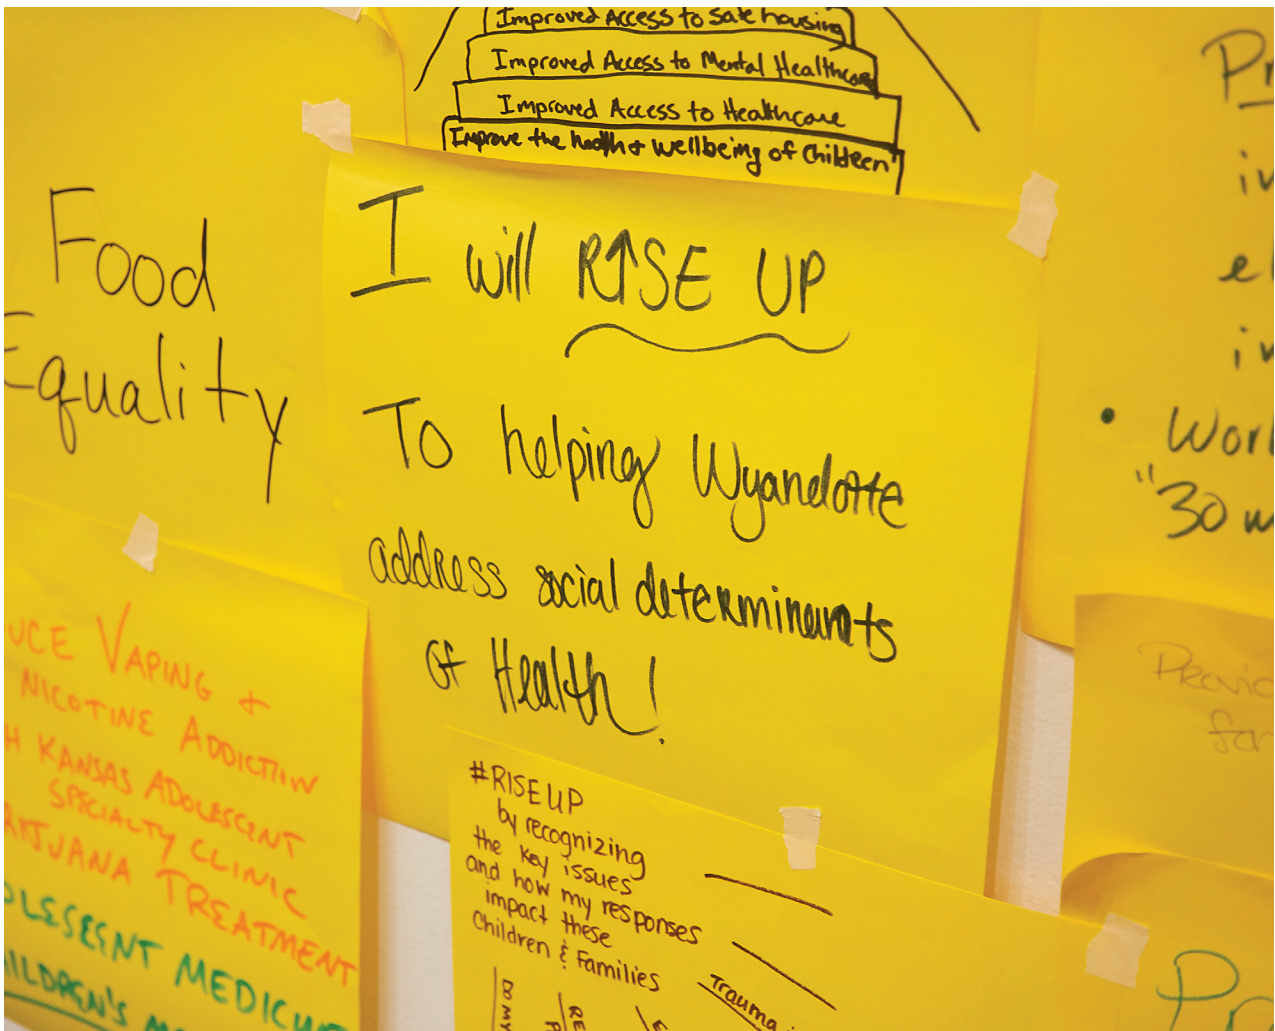 Improved Access to safe housing
Improved Access to Mental Healthcare
Improved Access to Healthcare
Improve the health & wellbeing of Children
Food
Equality
I will RISE UP
To helping Wyandotte
address social determinants
of Health!
Wor
"30
Provid
for
VAPING +
NICOTINE ADDICTION
KANSAS ADOLESCENT
SPECIALTY CLINIC
TREATMENT
MEDICINE
#RISEUP
by recognizing
the key issues
and how my responses
impact these
Children & Families
Trauma